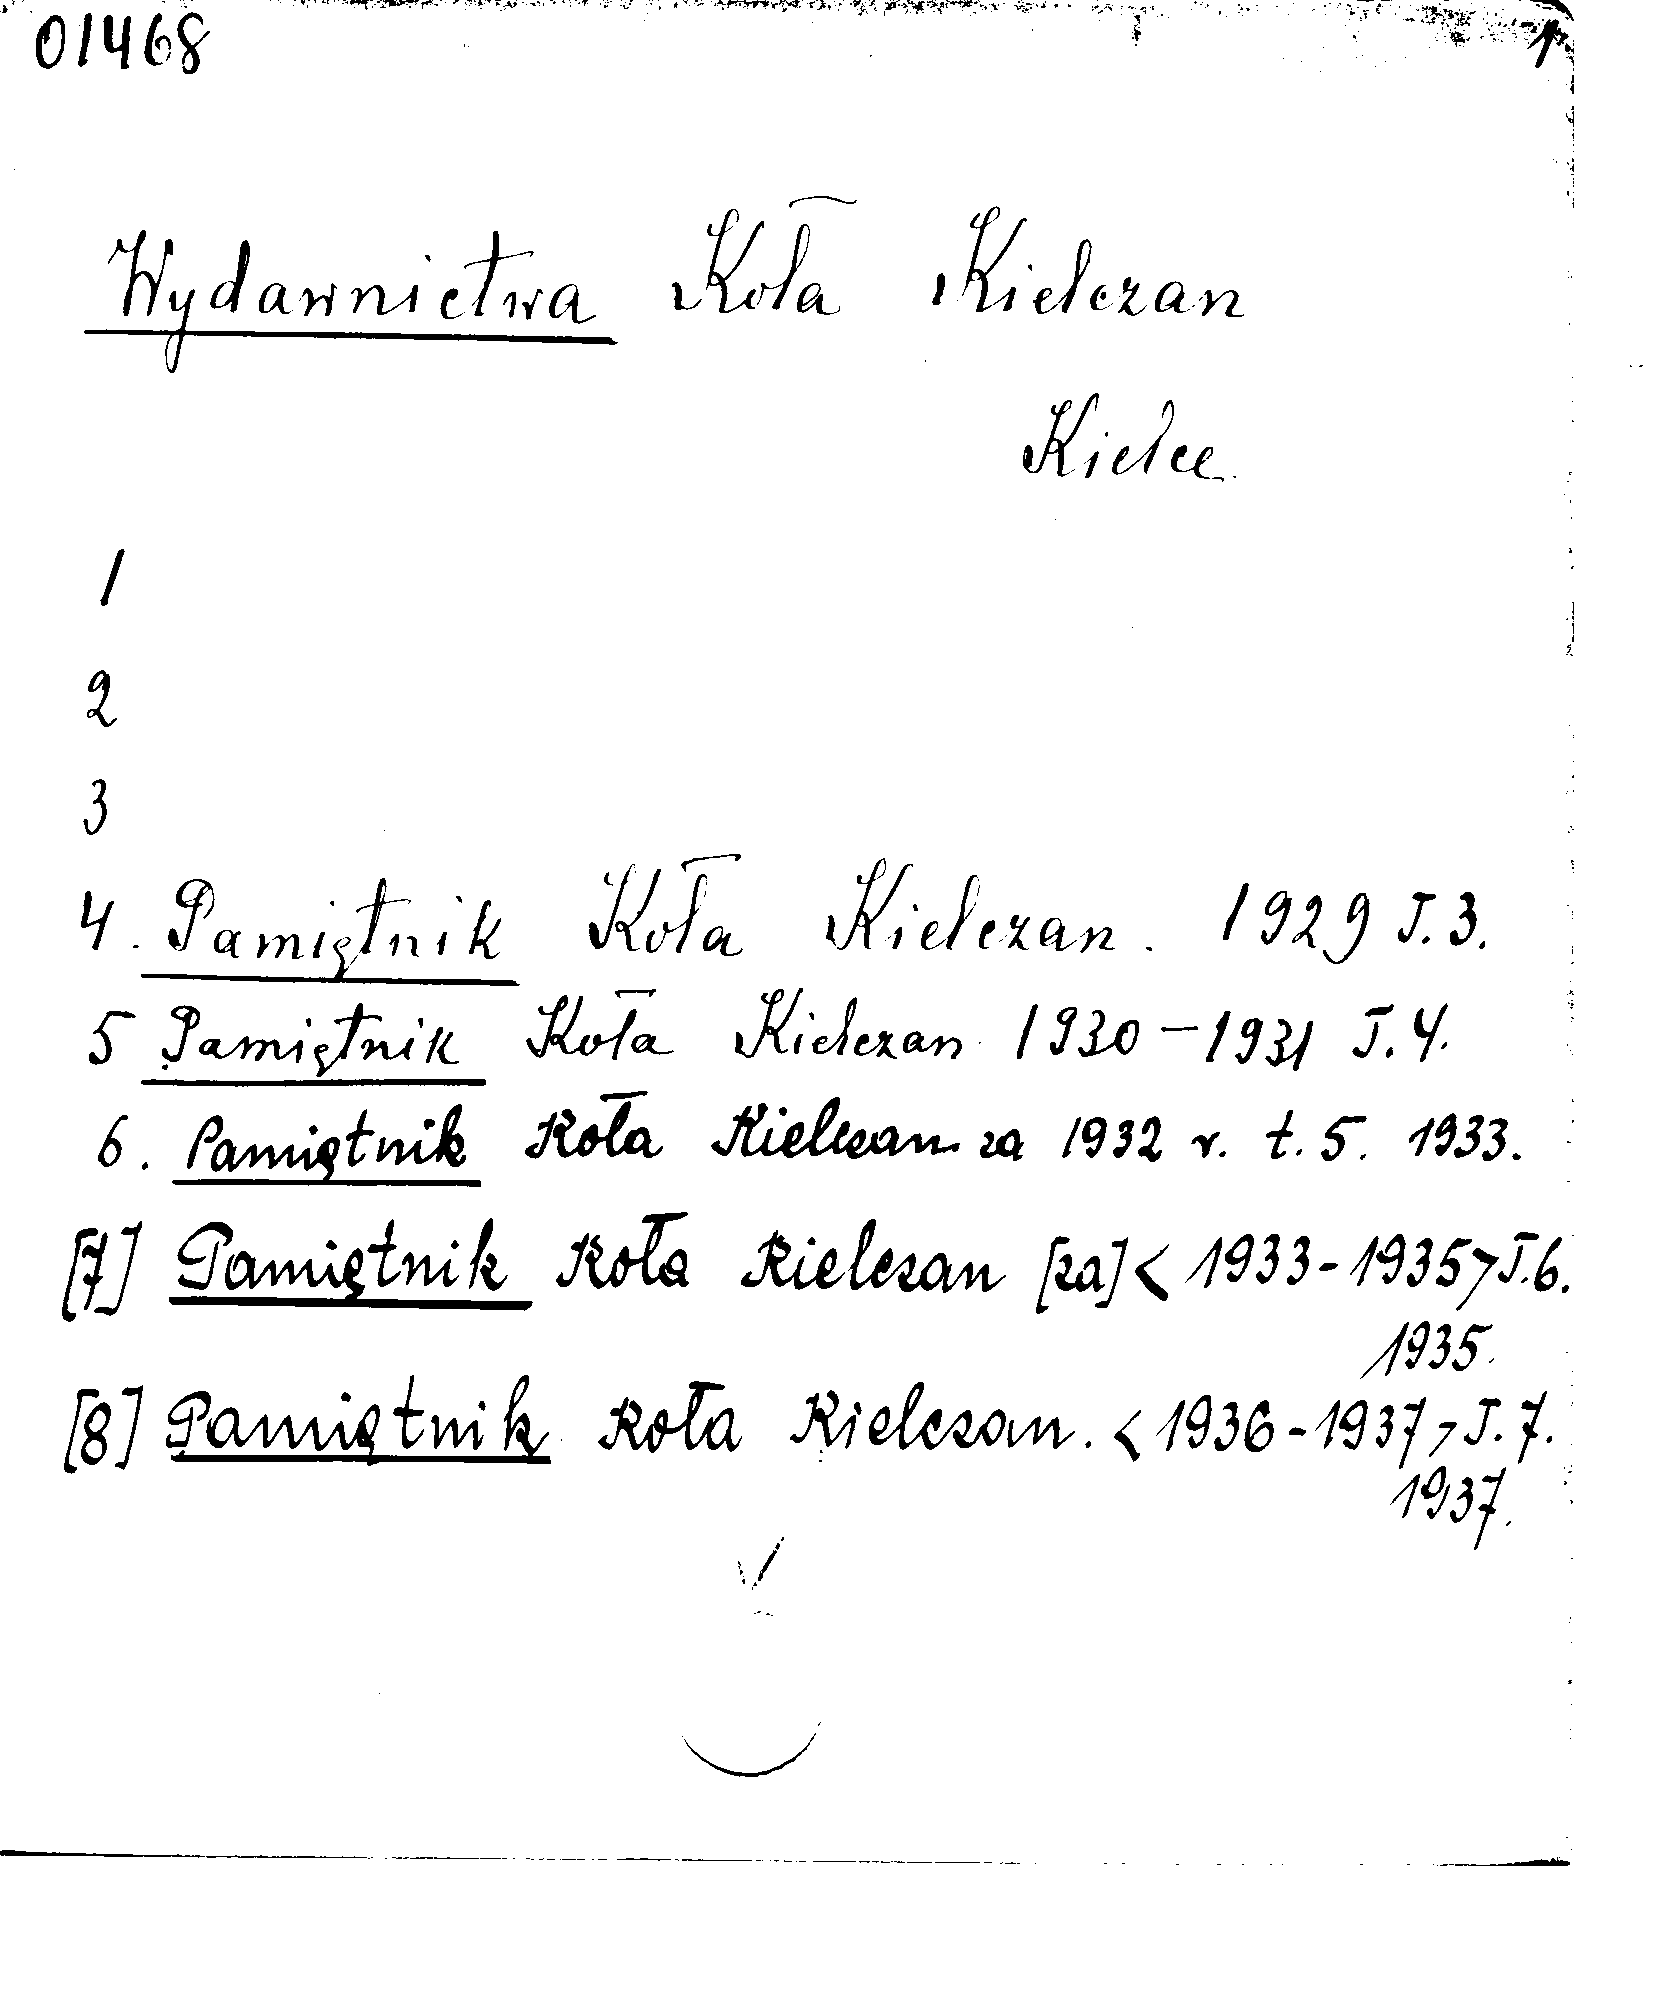 01468 1
Wydawnictwa Koła Kielczan
Kielce
1
2
3
4. Pamiętnik Koła Kielczan. 1929 T.3.
5 Pamiętnik Koła Kielczan 1930-1931 T.4.
6. Pamiętnik Koła Kielczan za 1932 r. t.5. 1933.
[7] Pamiętnik Koła Kielczan [za] < 1933-1935 > T.6.
1935.
[8] Pamiętnik Koła Kielczan. < 1936-1937 > T.7.
1937.